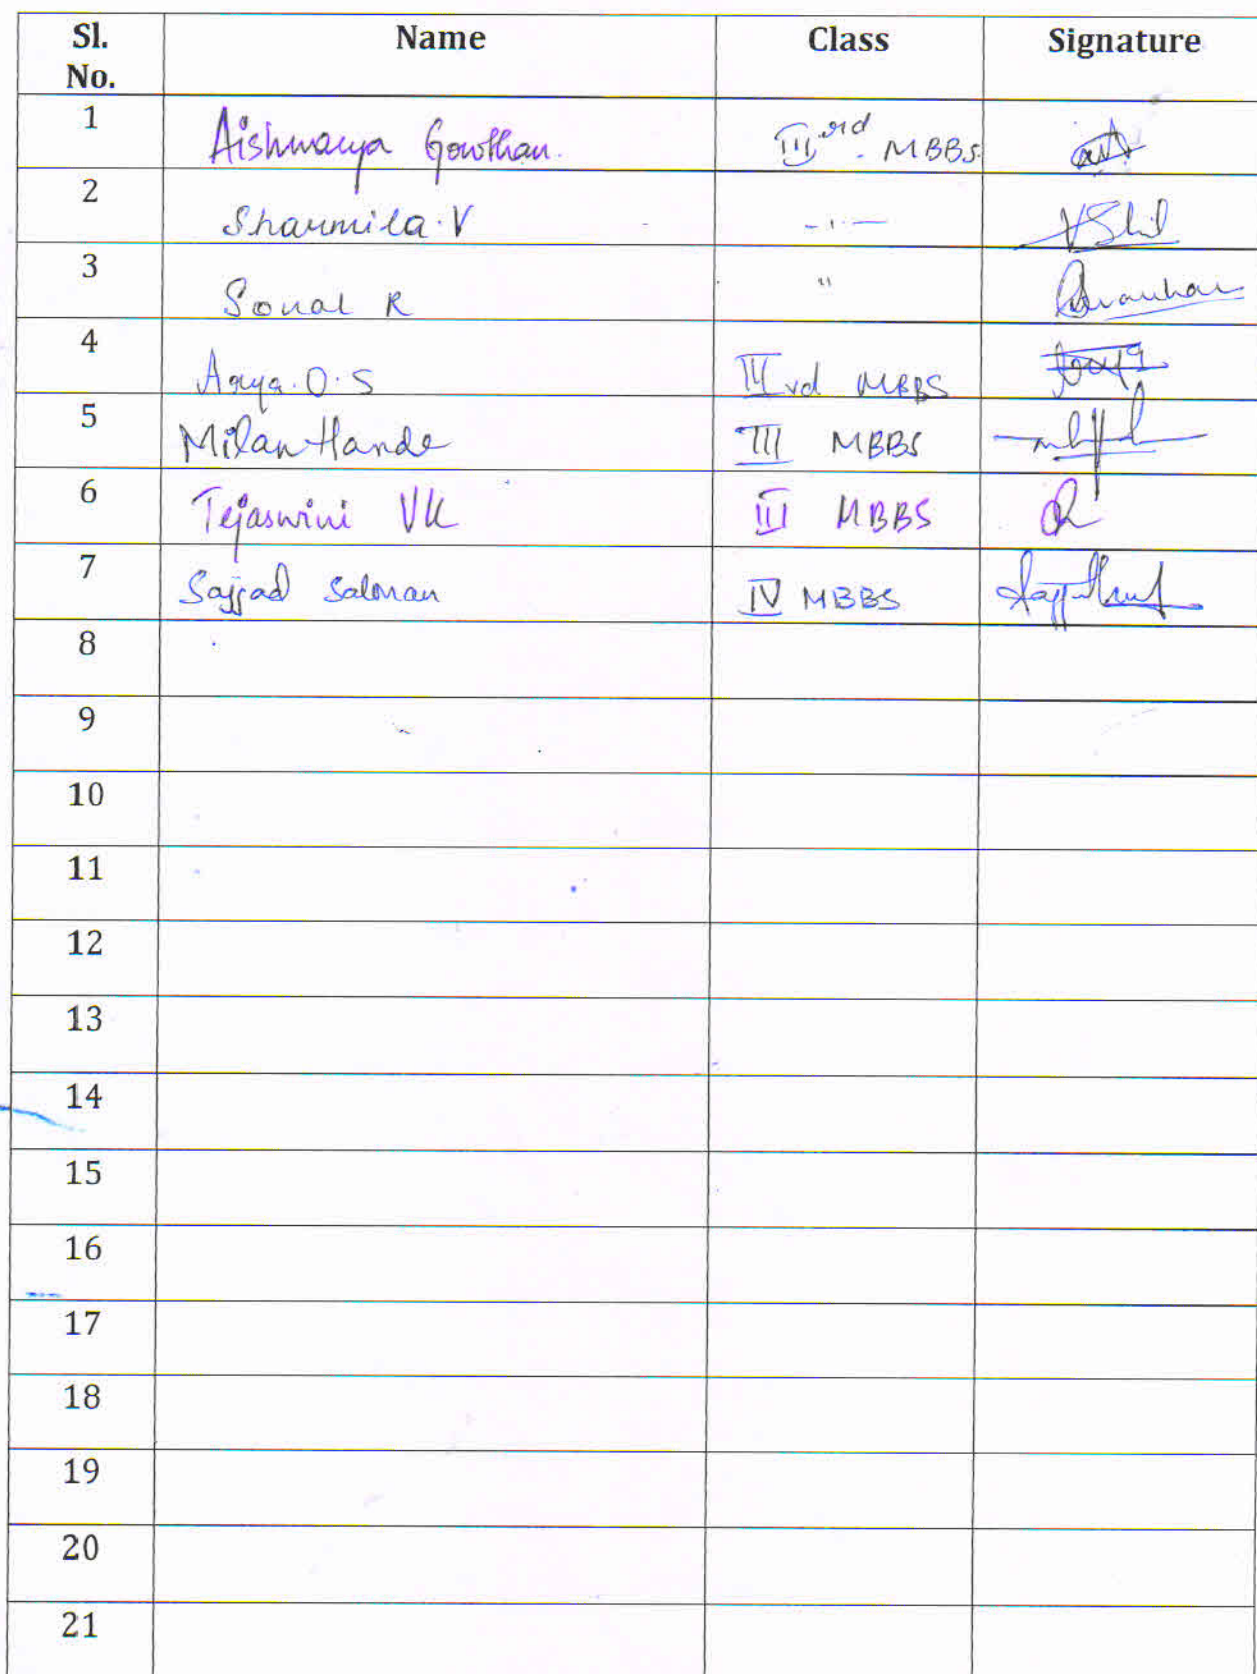 Sl. No. Name Class Signature
1 Aishwarya Gowthan. IIIrd. MBBS.
2 Sharmila.V -"-
3 Sonal R "
4 Arya.O.S IIIrd MBBS
5 Milan Hande III MBBS
6 Tejaswini VK III MBBS
7 Sajjad Salman IV MBBS
8
9
10
11
12
13
14
15
16
17
18
19
20
21